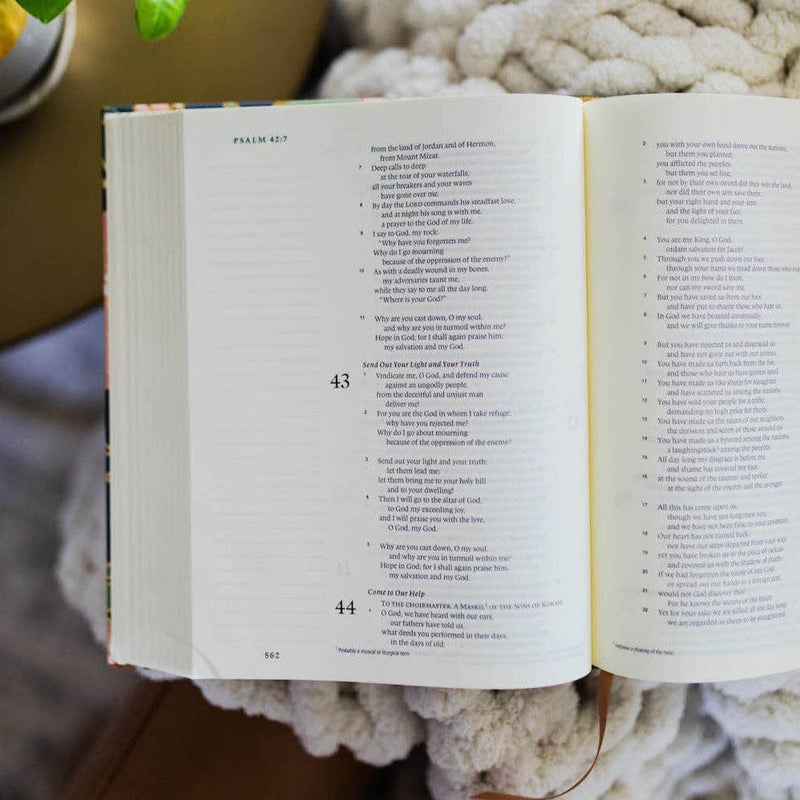 PSALM 42:7
from the land of Jordan and of Hermon,
from Mount Mizar.
7 Deep calls to deep
at the roar of your waterfalls;
all your breakers and your waves
have gone over me.
8 By day the LORD commands his steadfast love,
and at night his song is with me,
a prayer to the God of my life.
9 I say to God, my rock:
"Why have you forgotten me?
Why do I go mourning
because of the oppression of the enemy?"
10 As with a deadly wound in my bones,
my adversaries taunt me,
while they say to me all the day long,
"Where is your God?"
11 Why are you cast down, O my soul,
and why are you in turmoil within me?
Hope in God; for I shall again praise him,
my salvation and my God.
Send Out Your Light and Your Truth
43 1 Vindicate me, O God, and defend my cause
against an ungodly people,
from the deceitful and unjust man
deliver me!
2 For you are the God in whom I take refuge;
why have you rejected me?
Why do I go about mourning
because of the oppression of the enemy?
3 Send out your light and your truth;
let them lead me;
let them bring me to your holy hill
and to your dwelling!
4 Then I will go to the altar of God,
to God my exceeding joy,
and I will praise you with the lyre,
O God, my God.
5 Why are you cast down, O my soul,
and why are you in turmoil within me?
Hope in God; for I shall again praise him,
my salvation and my God.
Come to Our Help
44 TO THE CHOIRMASTER. A MASKIL¹ OF THE SONS OF KORAH.
1 O God, we have heard with our ears,
our fathers have told us,
what deeds you performed in their days,
in the days of old:
562
¹ Probably a musical or liturgical term
2 you with your own hand drove out the nations,
but them you planted;
you afflicted the peoples,
but them you set free;
3 for not by their own sword did they win the land,
nor did their own arm save them,
but your right hand and your arm,
and the light of your face,
for you delighted in them.
4 You are my King, O God;
ordain salvation for Jacob!
5 Through you we push down our foes;
through your name we tread down those who rise
6 For not in my bow do I trust,
nor can my sword save me.
7 But you have saved us from our foes
and have put to shame those who hate us.
8 In God we have boasted continually,
and we will give thanks to your name forever.
9 But you have rejected us and disgraced us
and have not gone out with our armies.
10 You have made us turn back from the foe,
and those who hate us have gotten spoil.
11 You have made us like sheep for slaughter
and have scattered us among the nations.
12 You have sold your people for a trifle,
demanding no high price for them.
13 You have made us the taunt of our neighbors,
the derision and scorn of those around us.
14 You have made us a byword among the nations,
a laughingstock¹ among the peoples.
15 All day long my disgrace is before me,
and shame has covered my face
16 at the sound of the taunter and reviler,
at the sight of the enemy and the avenger.
17 All this has come upon us,
though we have not forgotten you,
and we have not been false to your covenant.
18 Our heart has not turned back,
nor have our steps departed from your way;
19 yet you have broken us in the place of jackals
and covered us with the shadow of death.
20 If we had forgotten the name of our God
or spread out our hands to a foreign god,
21 would not God discover this?
For he knows the secrets of the heart.
22 Yet for your sake we are killed all the day long;
we are regarded as sheep to be slaughtered.
¹ Hebrew a shaking of the head